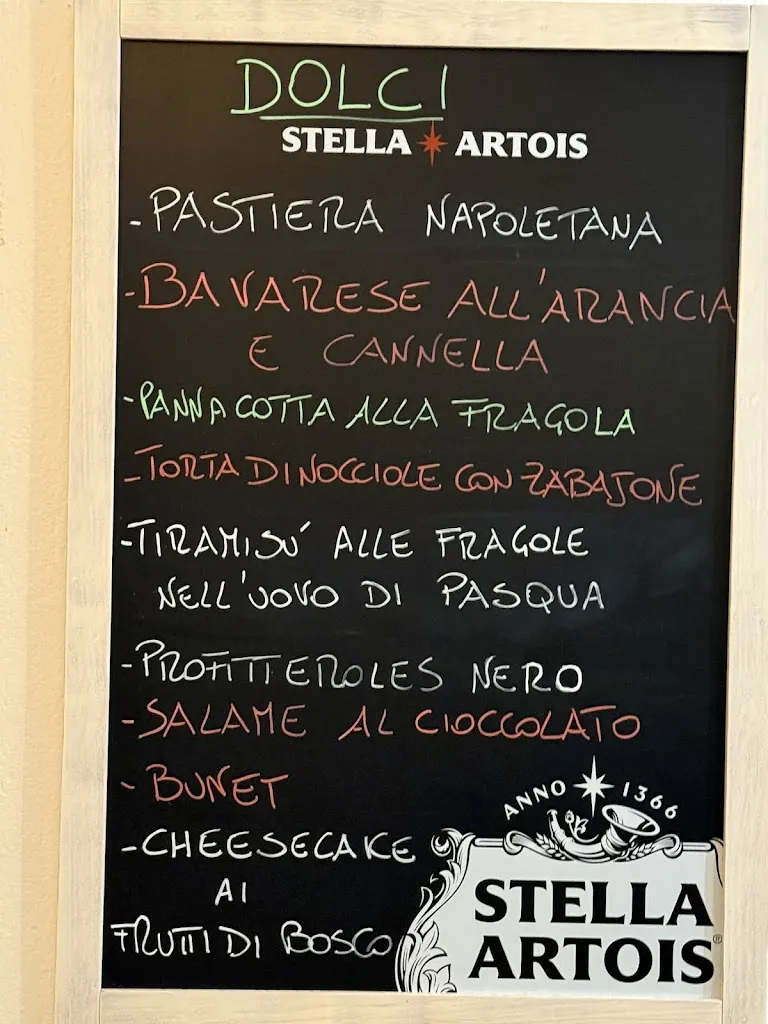 DOLCI
STELLA ARTOIS
- PASTIERA NAPOLETANA
- BAVARESE ALL'ARANCIA
E CANNELLA
- PANNACOTTA ALLA FRAGOLA
- TORTA DI NOCCIOLE CON ZABAJONE
- TIRAMISU' ALLE FRAGOLE
NELL'UOVO DI PASQUA
- PROFITTEROLES NERO
- SALAME AL CIOCCOLATO
- BUNET
ANNO 1366
- CHEESECAKE
AI
FRUTTI DI BOSCO
STELLA
ARTOIS®